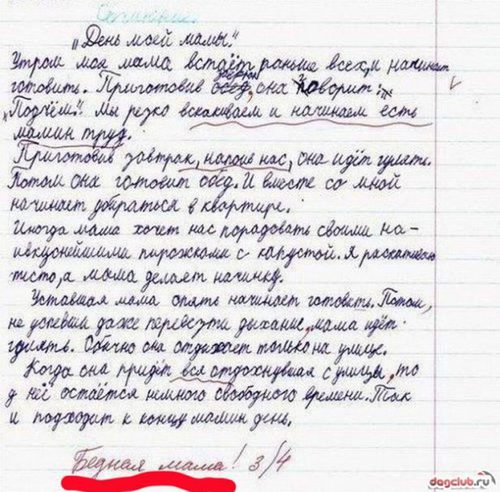 Сочинение.
„День моей мамы."
Утром моя мама встаёт раньше всех, и начинает
готовить. Приготовив обед, она говорит:
„Подъём". Мы резко вскакиваем и начинаем есть
мамин труд.
Приготовив завтрак, напоив нас, она идёт гулять.
Потом она готовит обед. И вместе со мной
начинает убираться в квартире.
Иногда мама хочет нас порадовать своими на-
ивкуснейшими пирожками с капустой. Я раскатываю
тесто, а мама делает начинку.
Уставшая мама опять начинает готовить. Потом,
не успевши даже перевезти дыхание, мама идёт
гулять. Обычно она отдыхает только на улице.
Когда она придёт вся отдохнувшая с улицы, то
у неё остаётся немного свободного времени. Так
и подходит к концу мамин день.
Бедная мама! 3/4
dogclub.ru